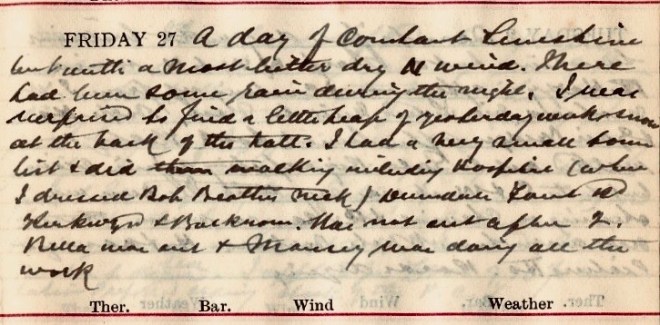 FRIDAY 27 A day of Constant Sunshine
but with a most bitter dry N wind. There
had been some rain during the night. I was
surprised to find a little heap of yesterday snow
at the back of the hall. I had a very small town
list & did them walking including Hospital (where
I dressed Bob Beatties neck) Dundas Road
& Backrow. Was not out after 2.
Bella was out & Maisey was doing all the
work
Ther. Bar. Wind Weather